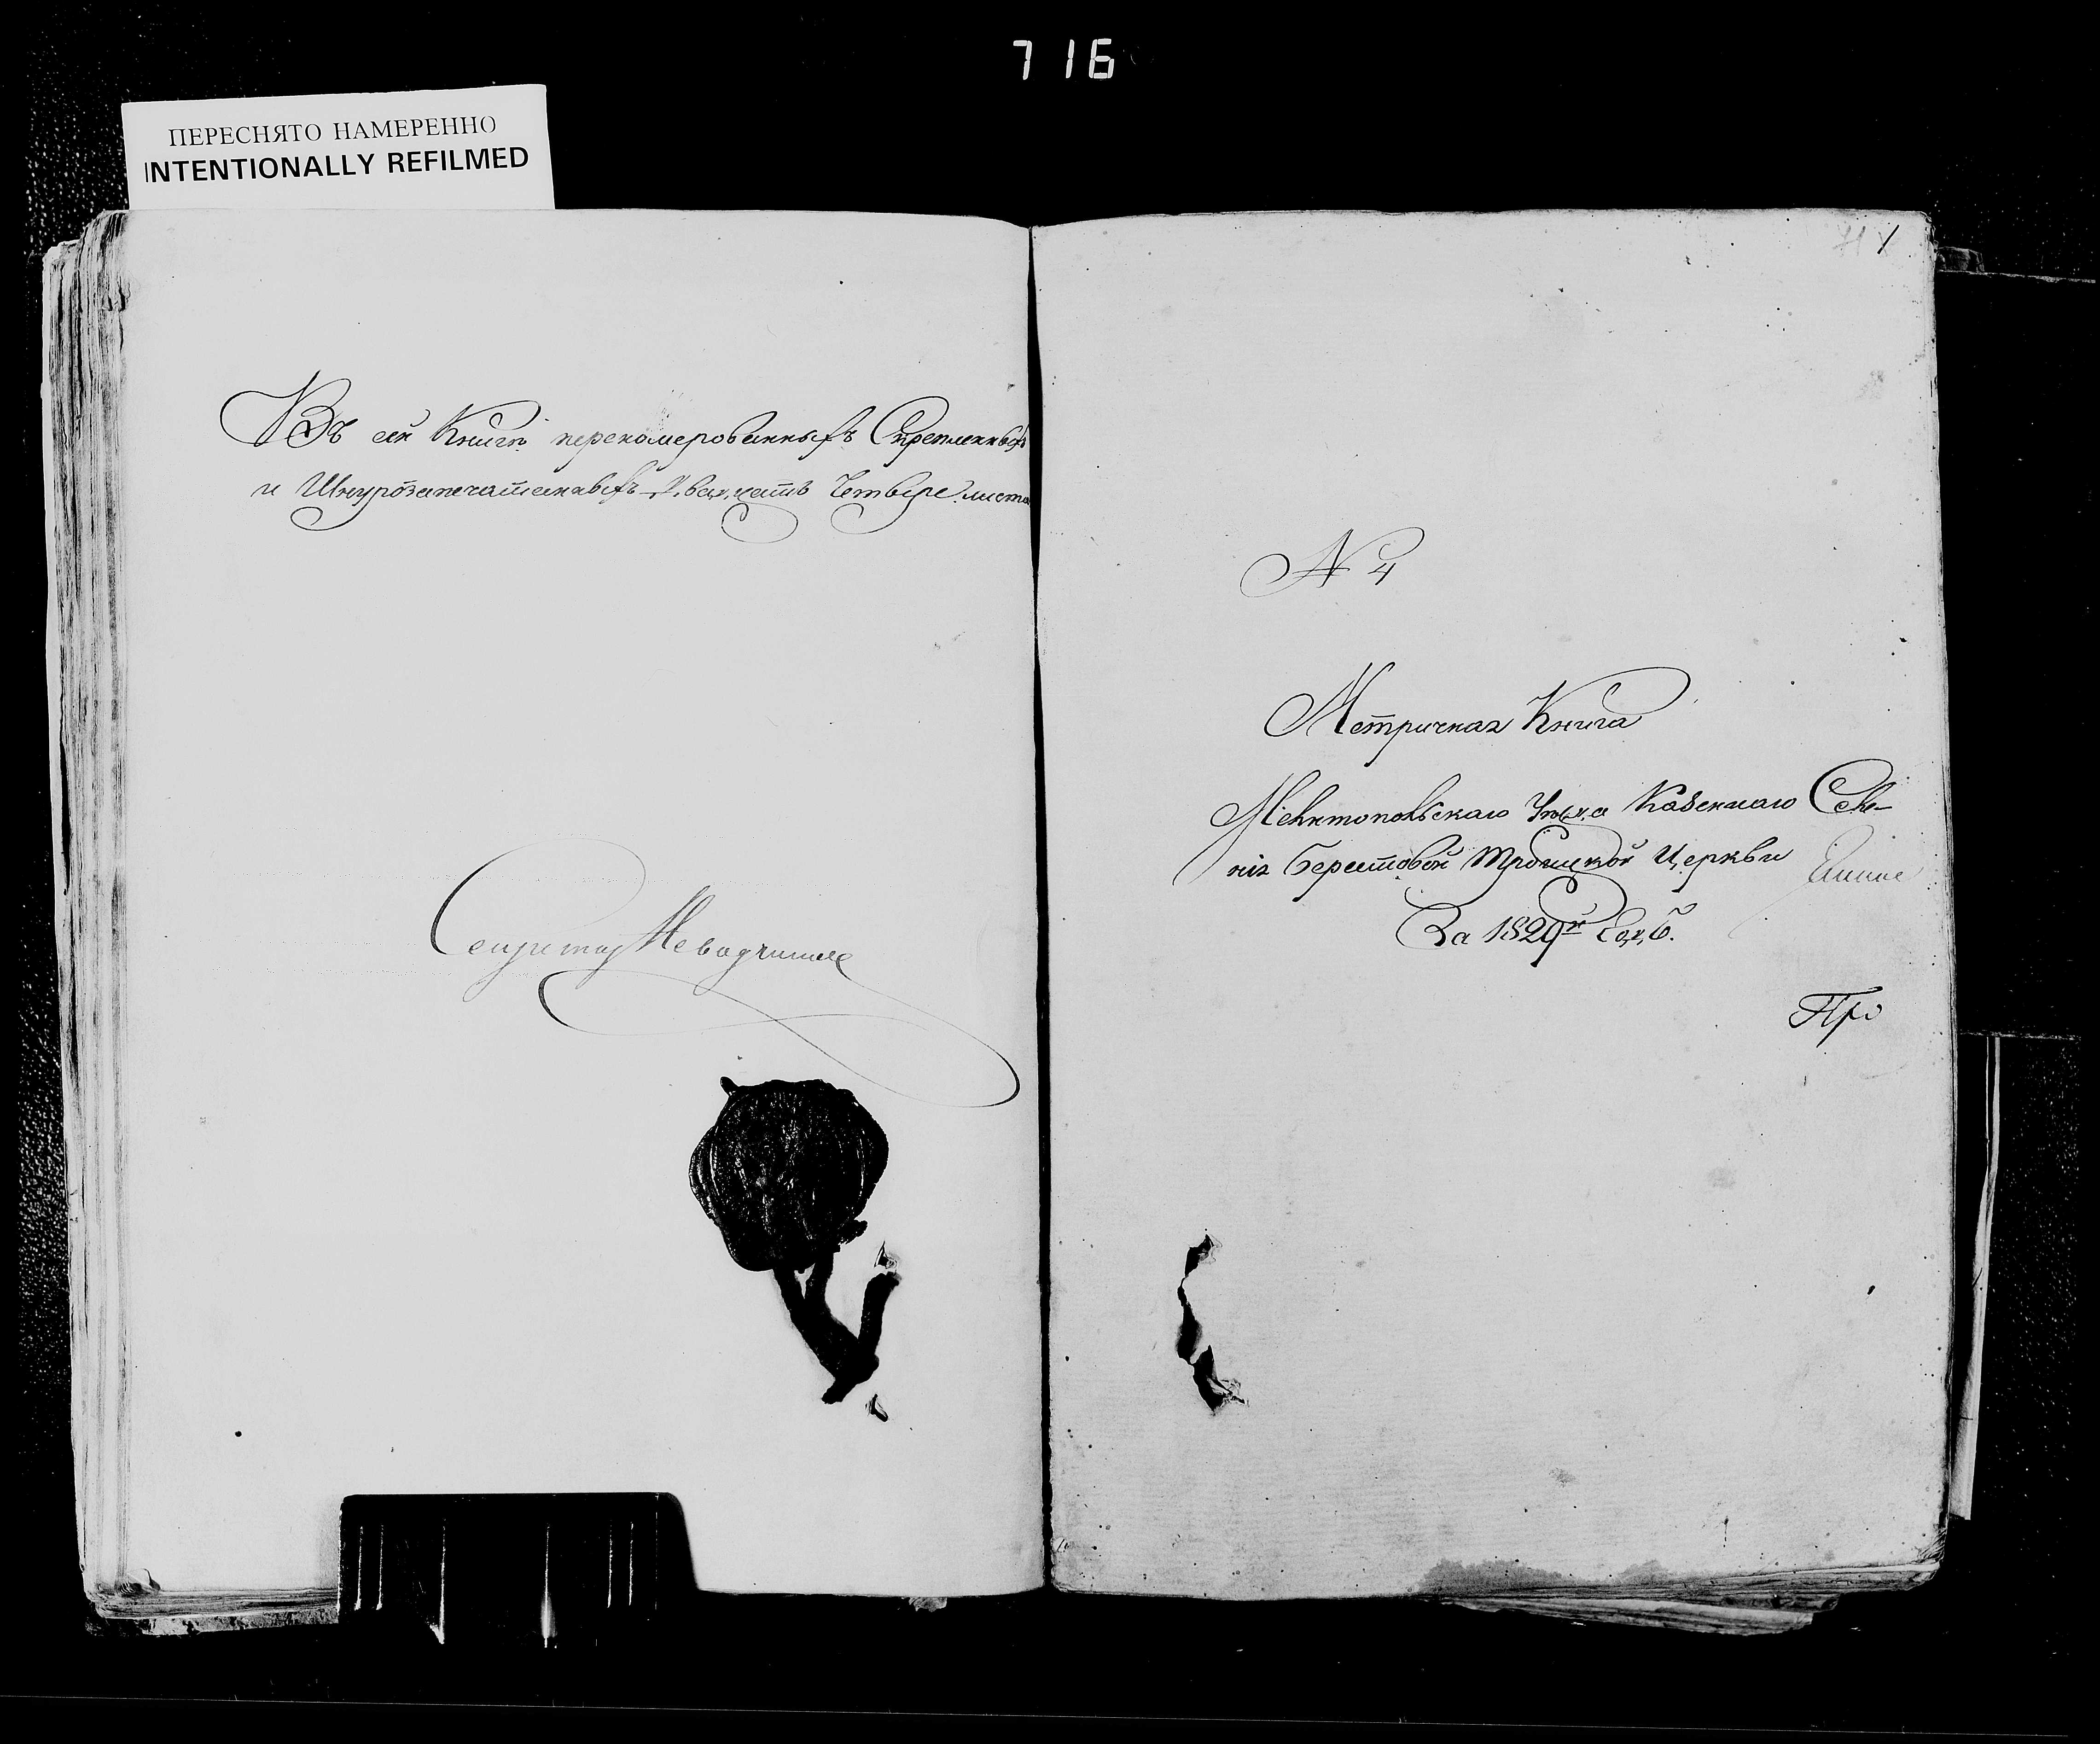 716
ПЕРЕСНЯТО НАМЕРЕННО
INTENTIONALLY REFILMED
Въ сей Книгѣ перекомерованныхъ Скрепленныхъ
и Шнурозапечатанныхъ Двадцать Четыре листа
Секретарь
1
N 4
Метричная Книга
Мелитопольскаго Уѣзда Казеннаго Селе-
нія Берестовой Троицкой Церкви
За 1829й Годъ.
Про